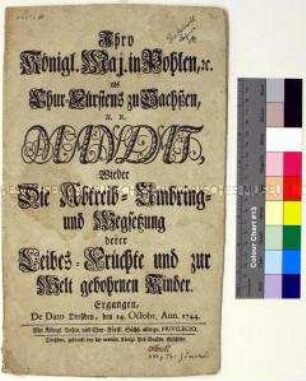 Ihro
Königl. Maj. in Pohlen, ꝛc.
als
Chur-Fürstens zu Sachßen,
ꝛc. ꝛc.
MANDAT,
Wieder
Die Abtreib- Umbring-
und Wegsetzung
derer
Leibes-Früchte und zur
Welt gebohrnen Kinder.
Ergangen,
De Dato Dreßden, den 14. Octobr. Ann. 1744.
Mit Königl. Pohln. und Chur-Fürstl. Sächß. allergn. PRIVILEGIO.
Dreßden, gedruckt bey der verwitt. Königl. Hof-Buchdr.
Colour Chart #13